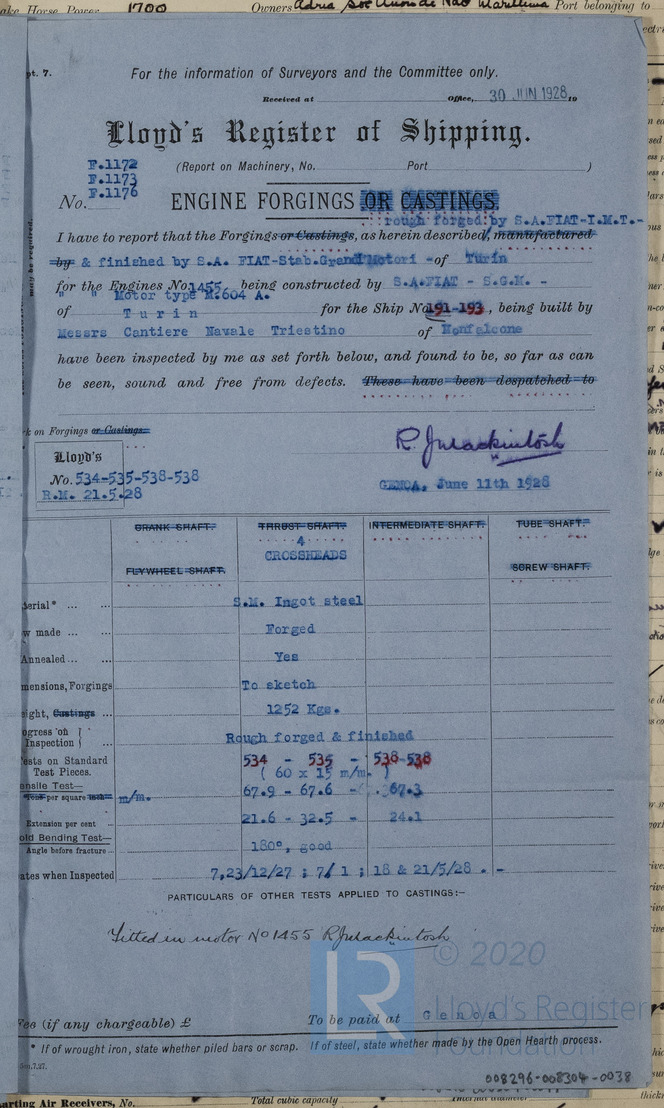 ake Horse Power 1700 Owners Adria Soc Anon di Nav Marittima Port belonging to
pt. 7.
For the information of Surveyors and the Committee only.
Received at Office, 30 JUN 1928 19
Lloyd's Register of Shipping.
F.1172
F.1173
F.1176
(Report on Machinery, No. Port )
No. ENGINE FORGINGS OR CASTINGS
rough forged by S.A.FIAT-I.M.T.-
I have to report that the Forgings or Castings, as herein described, manufactured
by & finished by S.A. FIAT-Stab.Grandi Motori - of Turin
for the Engines No. 1455 being constructed by S.A.FIAT - S.G.M. -
" " Motor type M.604 A.
of Turin for the Ship No. 191-193, being built by
Messrs Cantiere Navale Triestino of Monfalcone
have been inspected by me as set forth below, and found to be, so far as can
be seen, sound and free from defects. These have been despatched to
may be required.
k on Forgings or Castings.
Lloyd's
No. 534-535-538-538
R.M. 21.5.28
R. J. Mackintosh
GENOA, June 11th 1928
CRANK SHAFT. THRUST SHAFT. INTERMEDIATE SHAFT. TUBE SHAFT.
4
CROSSHEADS
FLYWHEEL SHAFT. SCREW SHAFT.
terial* ... ... S.M. Ingot steel
w made ... ... Forged
Annealed ... ... Yes
mensions, Forgings To sketch
eight, Castings ... 1252 Kgs.
ogress on Inspection Rough forged & finished
ests on Standard Test Pieces. 534 - 535 - 538-538
( 60 x 15 m/m. )
ensile Test—
Tons per square inch m/m. 67.9 - 67.6 - 67.3
Extension per cent ... 21.6 - 32.5 - 24.1
old Bending Test—
Angle before fracture ... 180°, good
ates when Inspected 7,23/12/27 ; 7/1 ; 18 & 21/5/28 . -
PARTICULARS OF OTHER TESTS APPLIED TO CASTINGS:-
Fitted in motor No 1455 R J Mackintosh
© 2020
LR
Lloyd's Register
Foundation
Fee (if any chargeable) £ To be paid at Genoa
* If of wrought iron, state whether piled bars or scrap. If of steel, state whether made by the Open Hearth process.
008296-008304-0038
arting Air Receivers, No. Total cubic capacity Internal diameter thick